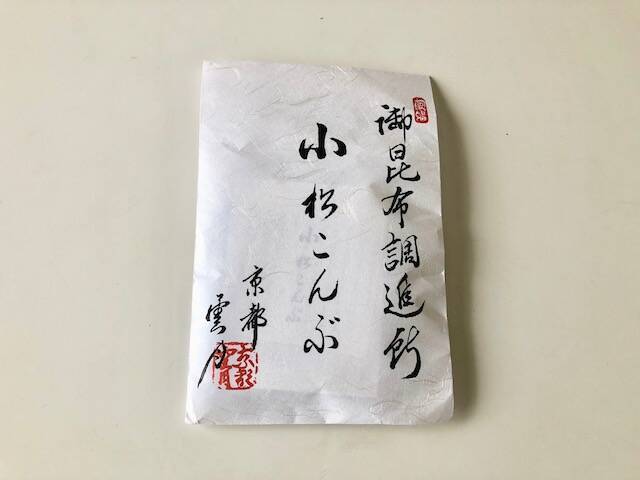 御昆布調進所
小松こんぶ
京都
雲月
京都雲月